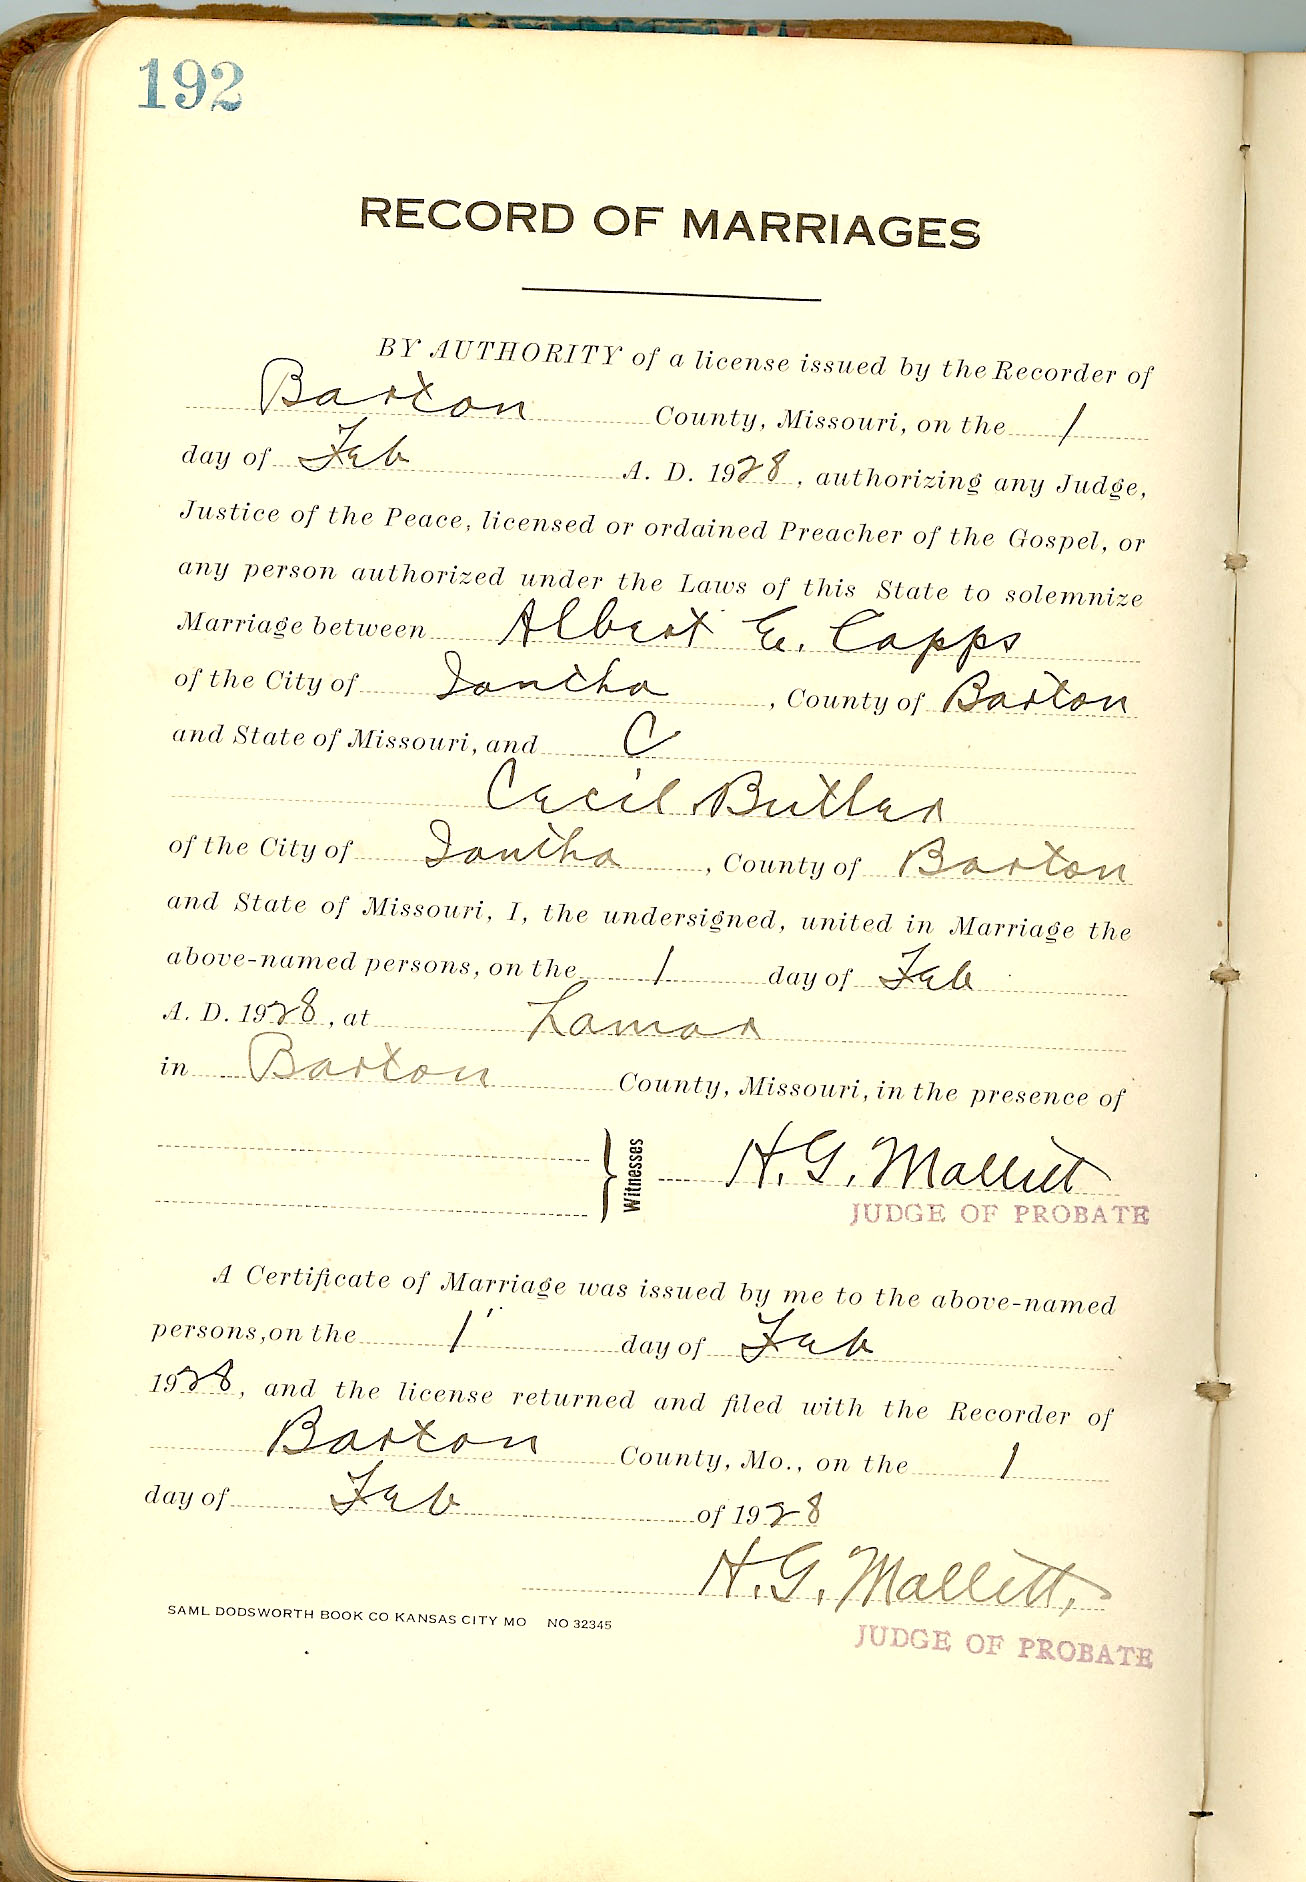 192
RECORD OF MARRIAGES
BY AUTHORITY of a license issued by the Recorder of
Barton County, Missouri, on the 1
day of Feb A. D. 1928, authorizing any Judge,
Justice of the Peace, licensed or ordained Preacher of the Gospel, or
any person authorized under the Laws of this State to solemnize
Marriage between Albert E. Capps
of the City of Iantha, County of Barton
and State of Missouri, and C
Cecil Butler
of the City of Iantha, County of Barton
and State of Missouri, I, the undersigned, united in Marriage the
above-named persons, on the 1 day of Feb
A. D. 1928, at Lamar
in Barton County, Missouri, in the presence of
Witnesses H. G. Mallett
JUDGE OF PROBATE
A Certificate of Marriage was issued by me to the above-named
persons, on the 1 day of Feb
1928, and the license returned and filed with the Recorder of
Barton County, Mo., on the 1
day of Feb of 1928
H. G. Mallett,
SAML DODSWORTH BOOK CO KANSAS CITY MO NO 32345
JUDGE OF PROBATE